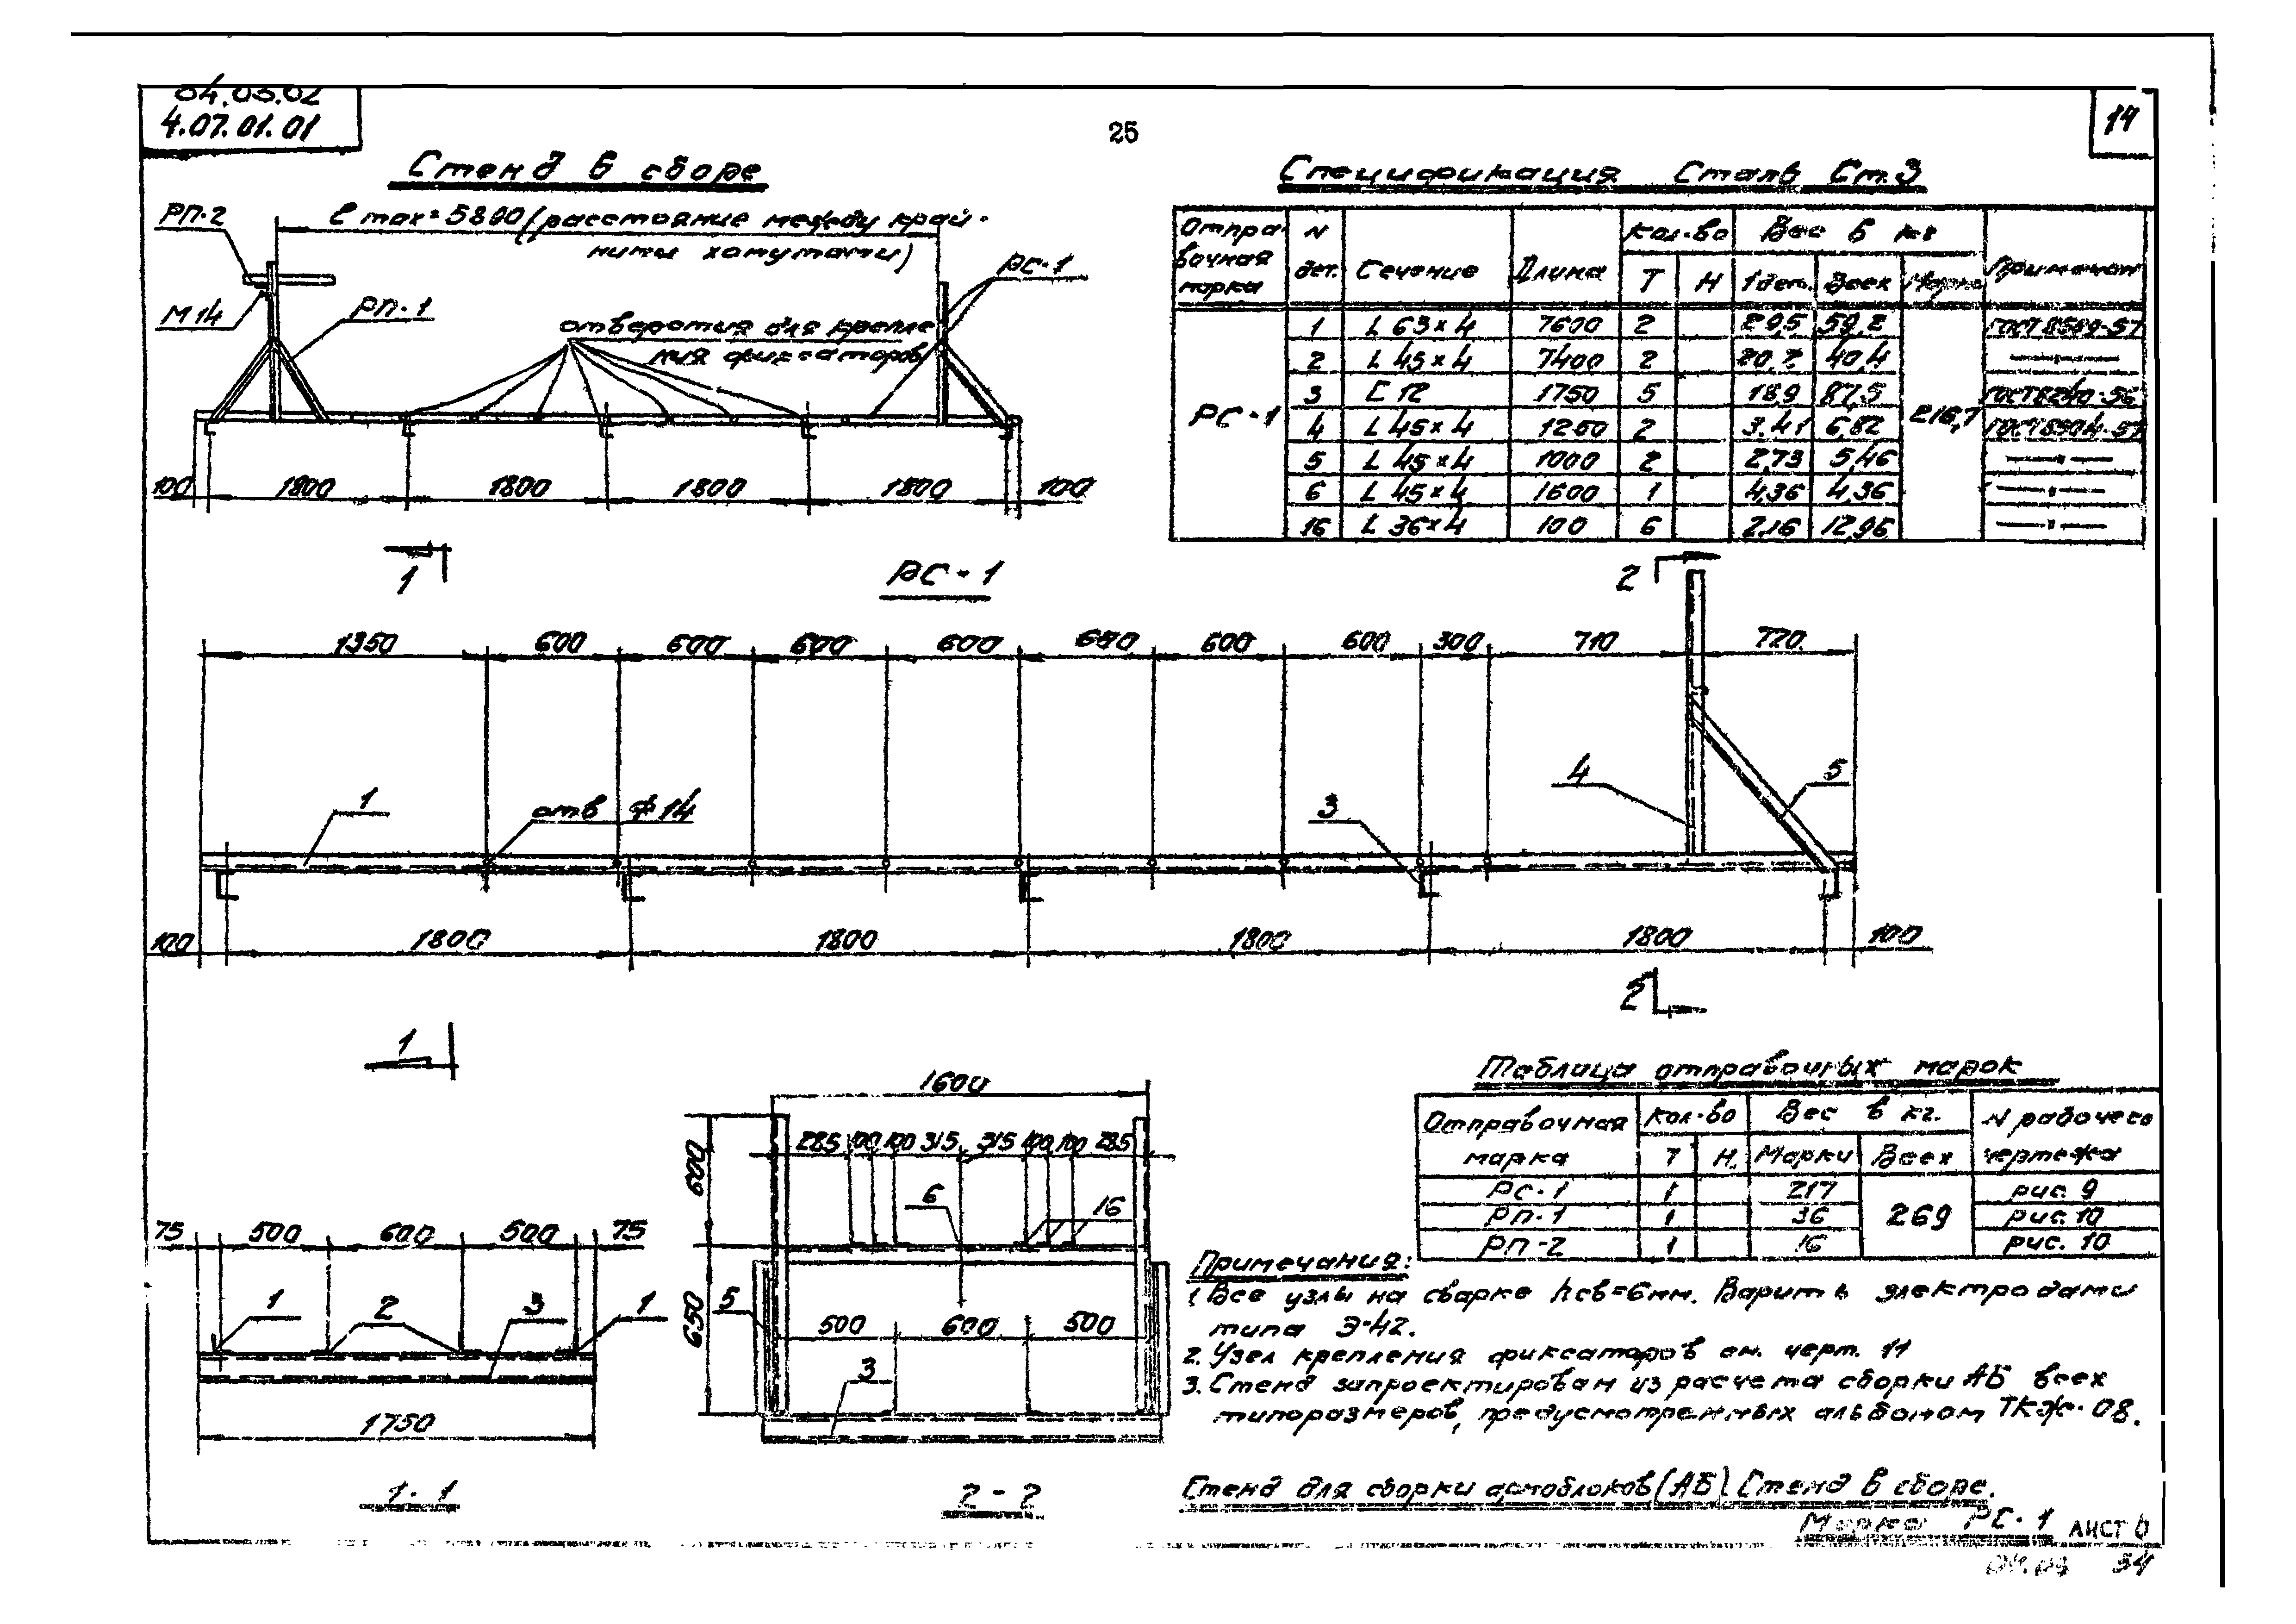 4.07.01.01
25
14
Стенд в сборе
Спецификация Сталь Ст.3
РП-2
l max=5800 (расстояние между край-
ними хомутами)
РС-1
М14
РП-1
отверстия для крепле
ния фиксаторов
100 1800 1800 1800 1800 100
Отправочная марка N дет. Сечение Длина Кол-во Вес в кг Примечан
Т Н 1 дет. Всех Марки
РС-1 216,7
1 L 63×4 7600 2 29,5 59,2 ГОСТ 8509-57
2 L 45×4 7400 2 20,2 40,4 —〃—
3 С 12 1750 5 18,9 87,5 ГОСТ 8240-56
4 L 45×4 1250 2 3.41 6,82 ГОСТ 8509-57
5 L 45×4 1000 2 2,73 5,46 —〃—
6 L 45×4 1600 1 4,36 4,36 —〃—
16 L 36×4 100 6 2,16 12,96 —〃—
1
РС-1
2
1350 600 600 600 600 600 600 600 300 710 720
1
отв Ф14
3
4
5
100 1800 1800 1800 1800 100
2
1
Таблица отправочных марок
Отправочная марка Кол-во Вес в кг. N рабочего чертежа
Т Н. Марки Всех
РС-1 1 217 269 рис. 9
РП-1 1 36 рис. 10
РП-2 1 16 рис. 10
75 500 600 500 75
1 2 3 1
1750
1-1
1600
285 100 100 315 315 100 100 285
600
650
6
16
5
500 600 500
3
2-2
Примечания:
1. Все узлы на сварке hсв=6мм. Варить электродами
типа Э-42.
2. Узел крепления фиксаторов см. черт. 11
3. Стенд запроектирован из расчета сборки АБ всех
типоразмеров, предусмотренных альбомом ТКЖ-08.
Стенд для сборки армоблоков (АБ). Стенд в сборе.
Марка РС-1 ЛИСТ 6
34